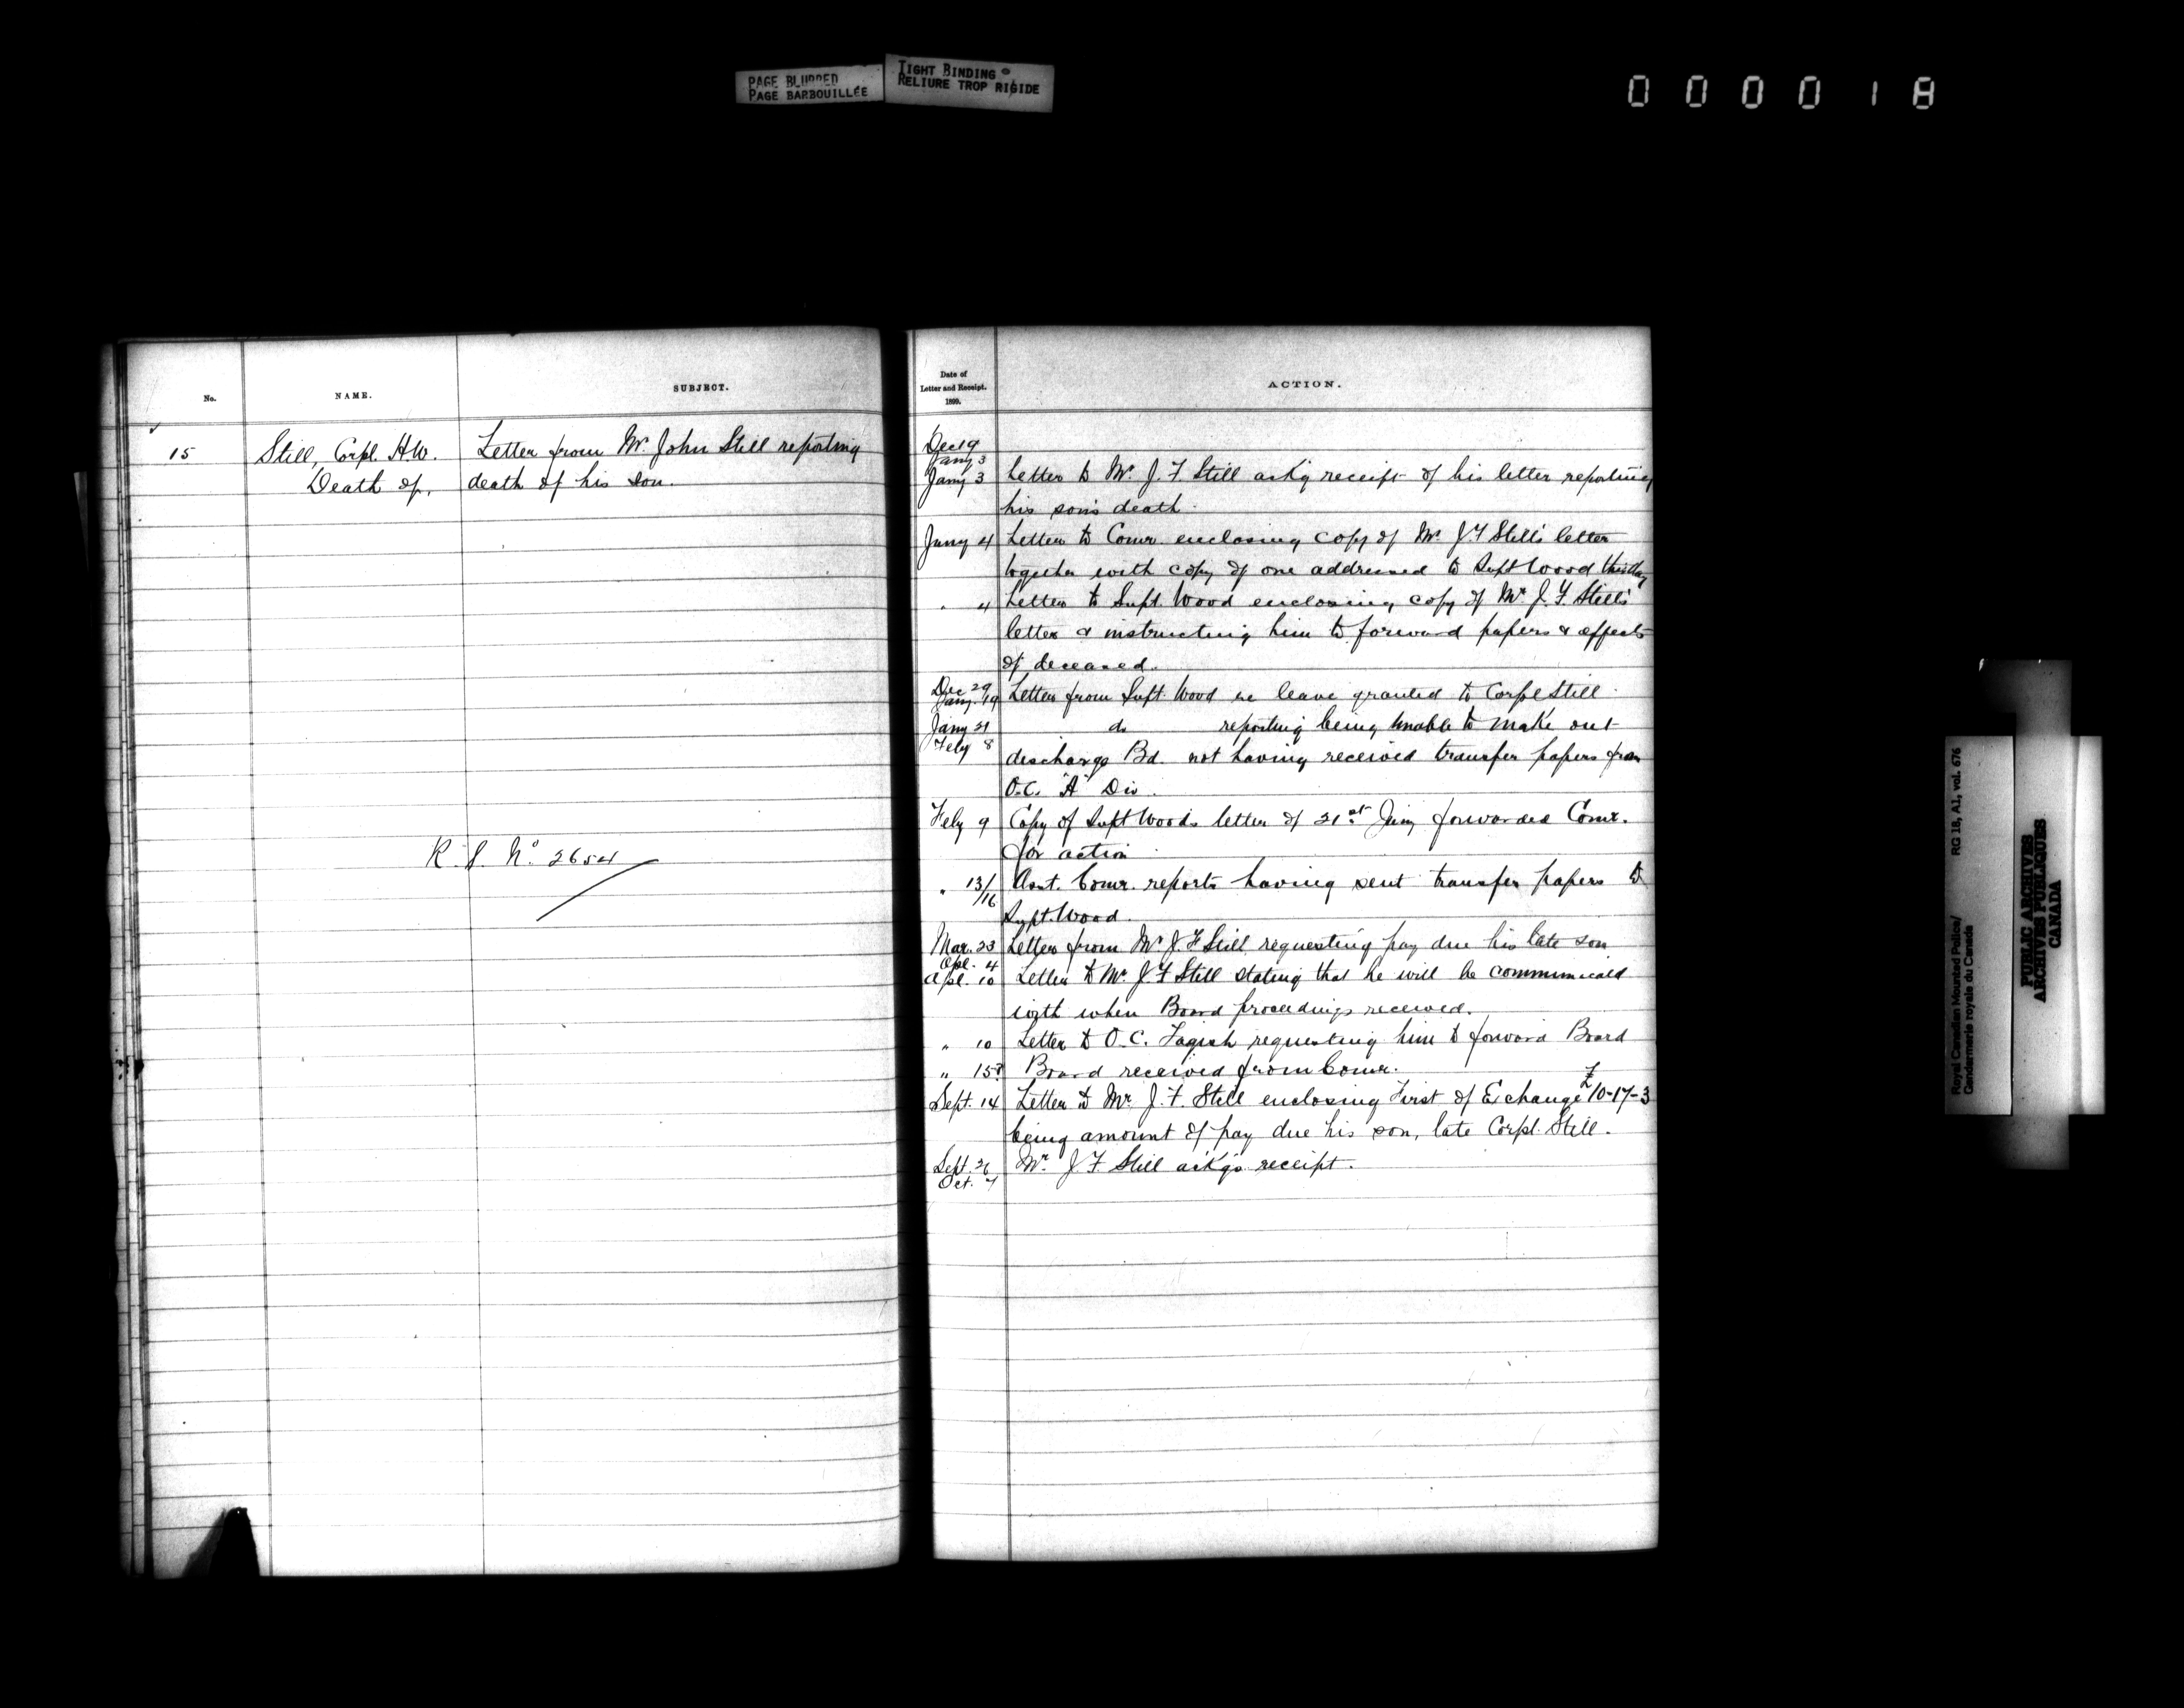 PAGE BLURRED
PAGE BARBOUILLÉE
TIGHT BINDING
RELIURE TROP RIGIDE
000018
No.
NAME.
SUBJECT.
15
Still, Corpl. H.W.
Death of,
Letter from Mr. John Still reporting
death of his son.
R.S. No. 2654
Date of
Letter and Receipt.
1899.
ACTION.
Dec 19
Jany 3
Jany 3 Letter to Mr. J. F. Still ackg receipt of his letter reporting
his son's death.
Jany 4 Letter to Comr. enclosing copy of Mr. J F Still's letter
together with copy of one addressed to Supt Wood this day
" 4 Letter to Supt. Wood enclosing copy of Mr. J. F. Still's
letter & instructing him to forward papers & effects
of deceased.
Dec 29
Jany. 19 Letter from Supt. Wood re leave granted to Corpl Still.
Jany 21 do reporting being unable to make out
Feby 8
discharge Bd. not having received transfer papers from
O.C. "A" Div.
Feby 9 Copy of Supt Woods letter of 21st Jany forwarded Comr.
for action
" 13/16 Asst. Comr. reports having sent transfer papers to
Supt. Wood.
Mar. 23 Letter from Mr J. F Still requesting pay due his late son
Apl. 4
Apl. 10 Letter to Mr. J. F Still stating that he will be communicated
with when Board proceedings received.
" 10 Letter to O.C. Tagish requesting him to forward Board
" 15 Board received from Comr.
Sept. 14 Letter to Mr. J. F. Still enclosing First of Exchange £10-17-3
being amount of pay due his son, late Corpl. Still.
Sept. 26 Mr. J. F Still ackg's receipt.
Oct. 7
Royal Canadian Mounted Police/
Gendarmerie royale du Canada
RG 18, A1, vol. 676
PUBLIC ARCHIVES
ARCHIVES PUBLIQUES
CANADA